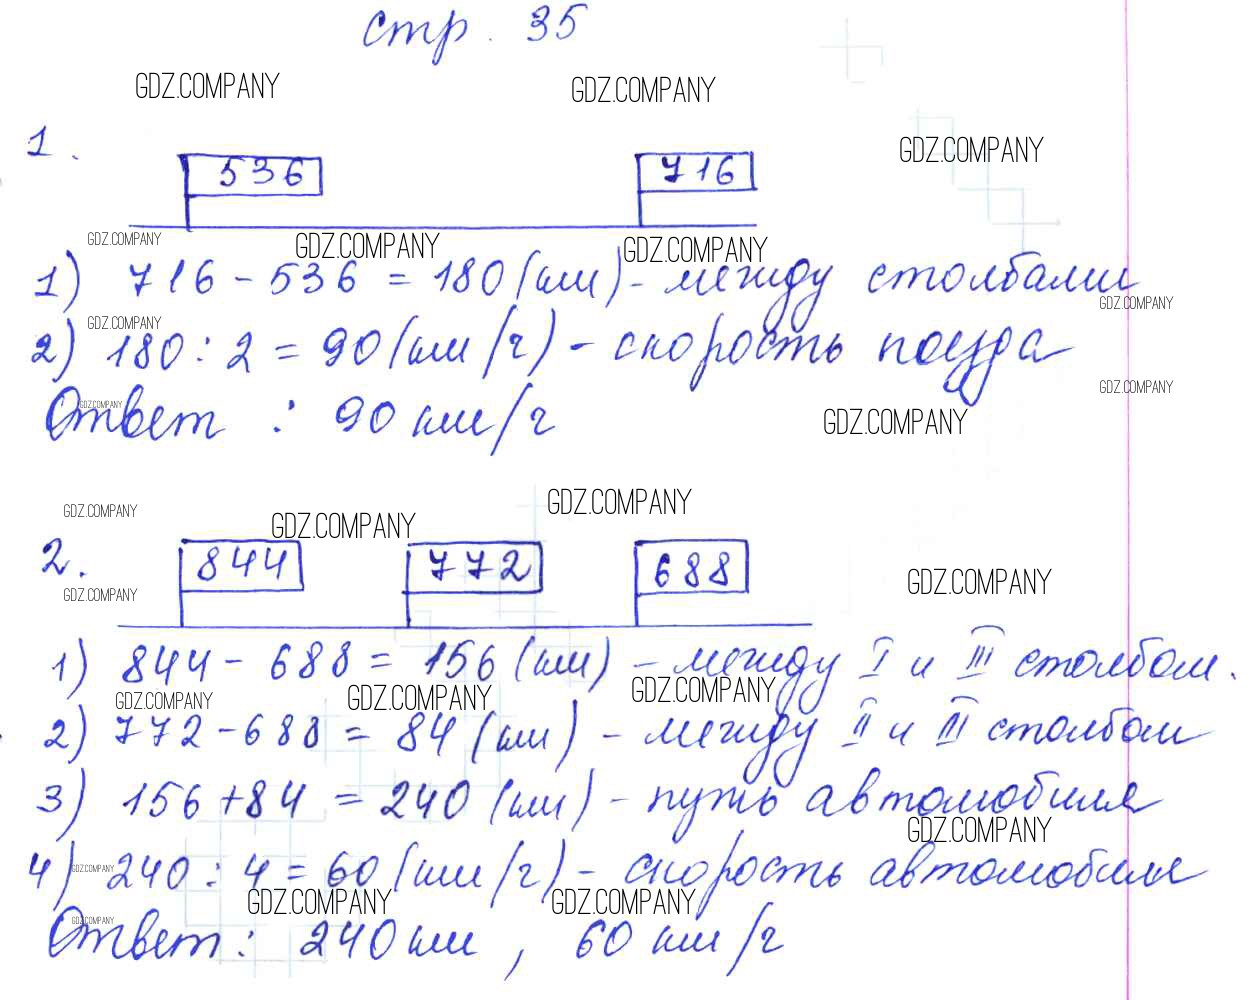 стр. 35
GDZ.COMPANY GDZ.COMPANY
GDZ.COMPANY
1.
536 716
GDZ.COMPANY GDZ.COMPANY GDZ.COMPANY
1) 716 - 536 = 180 (км) - между столбами
GDZ.COMPANY GDZ.COMPANY
2) 180 : 2 = 90 (км/ч) - скорость поезда
GDZ.COMPANY
GDZ.COMPANY GDZ.COMPANY
Ответ : 90 км/ч
GDZ.COMPANY GDZ.COMPANY GDZ.COMPANY
2.
844 772 688
GDZ.COMPANY GDZ.COMPANY
1) 844 - 688 = 156 (км) - между I и III столбом.
GDZ.COMPANY GDZ.COMPANY GDZ.COMPANY
2) 772 - 688 = 84 (км) - между II и III столбом
3) 156 + 84 = 240 (км) - путь автомобиля
GDZ.COMPANY
4) 240 : 4 = 60 (км/ч) - скорость автомобиля
GDZ.COMPANY
GDZ.COMPANY GDZ.COMPANY GDZ.COMPANY
Ответ: 240 км, 60 км/ч